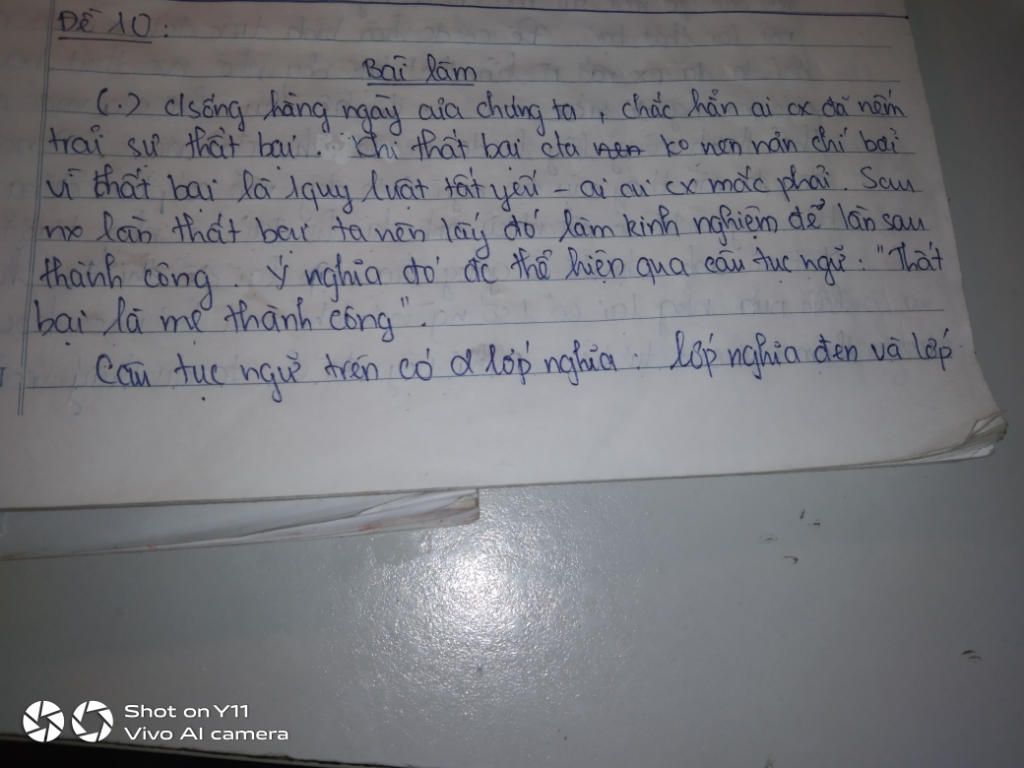 Đề 10 :
Bài làm
(.) c/sống hàng ngày của chúng ta, chắc hẳn ai cx đã nếm
trải sự thất bại. Khi thất bại cta nen ko nen nản chí bởi
vì thất bại là 1 quy luật tất yếu - ai ai cx mắc phải. Sau
mỗi lần thất bại ta nên lấy đó làm kinh nghiệm để lần sau
thành công. Ý nghĩa đó đc thể hiện qua câu tục ngữ : "Thất
bại là mẹ thành công".
Câu tục ngữ trên có 2 lớp nghĩa : lớp nghĩa đen và lớp
Shot on Y11
Vivo AI camera